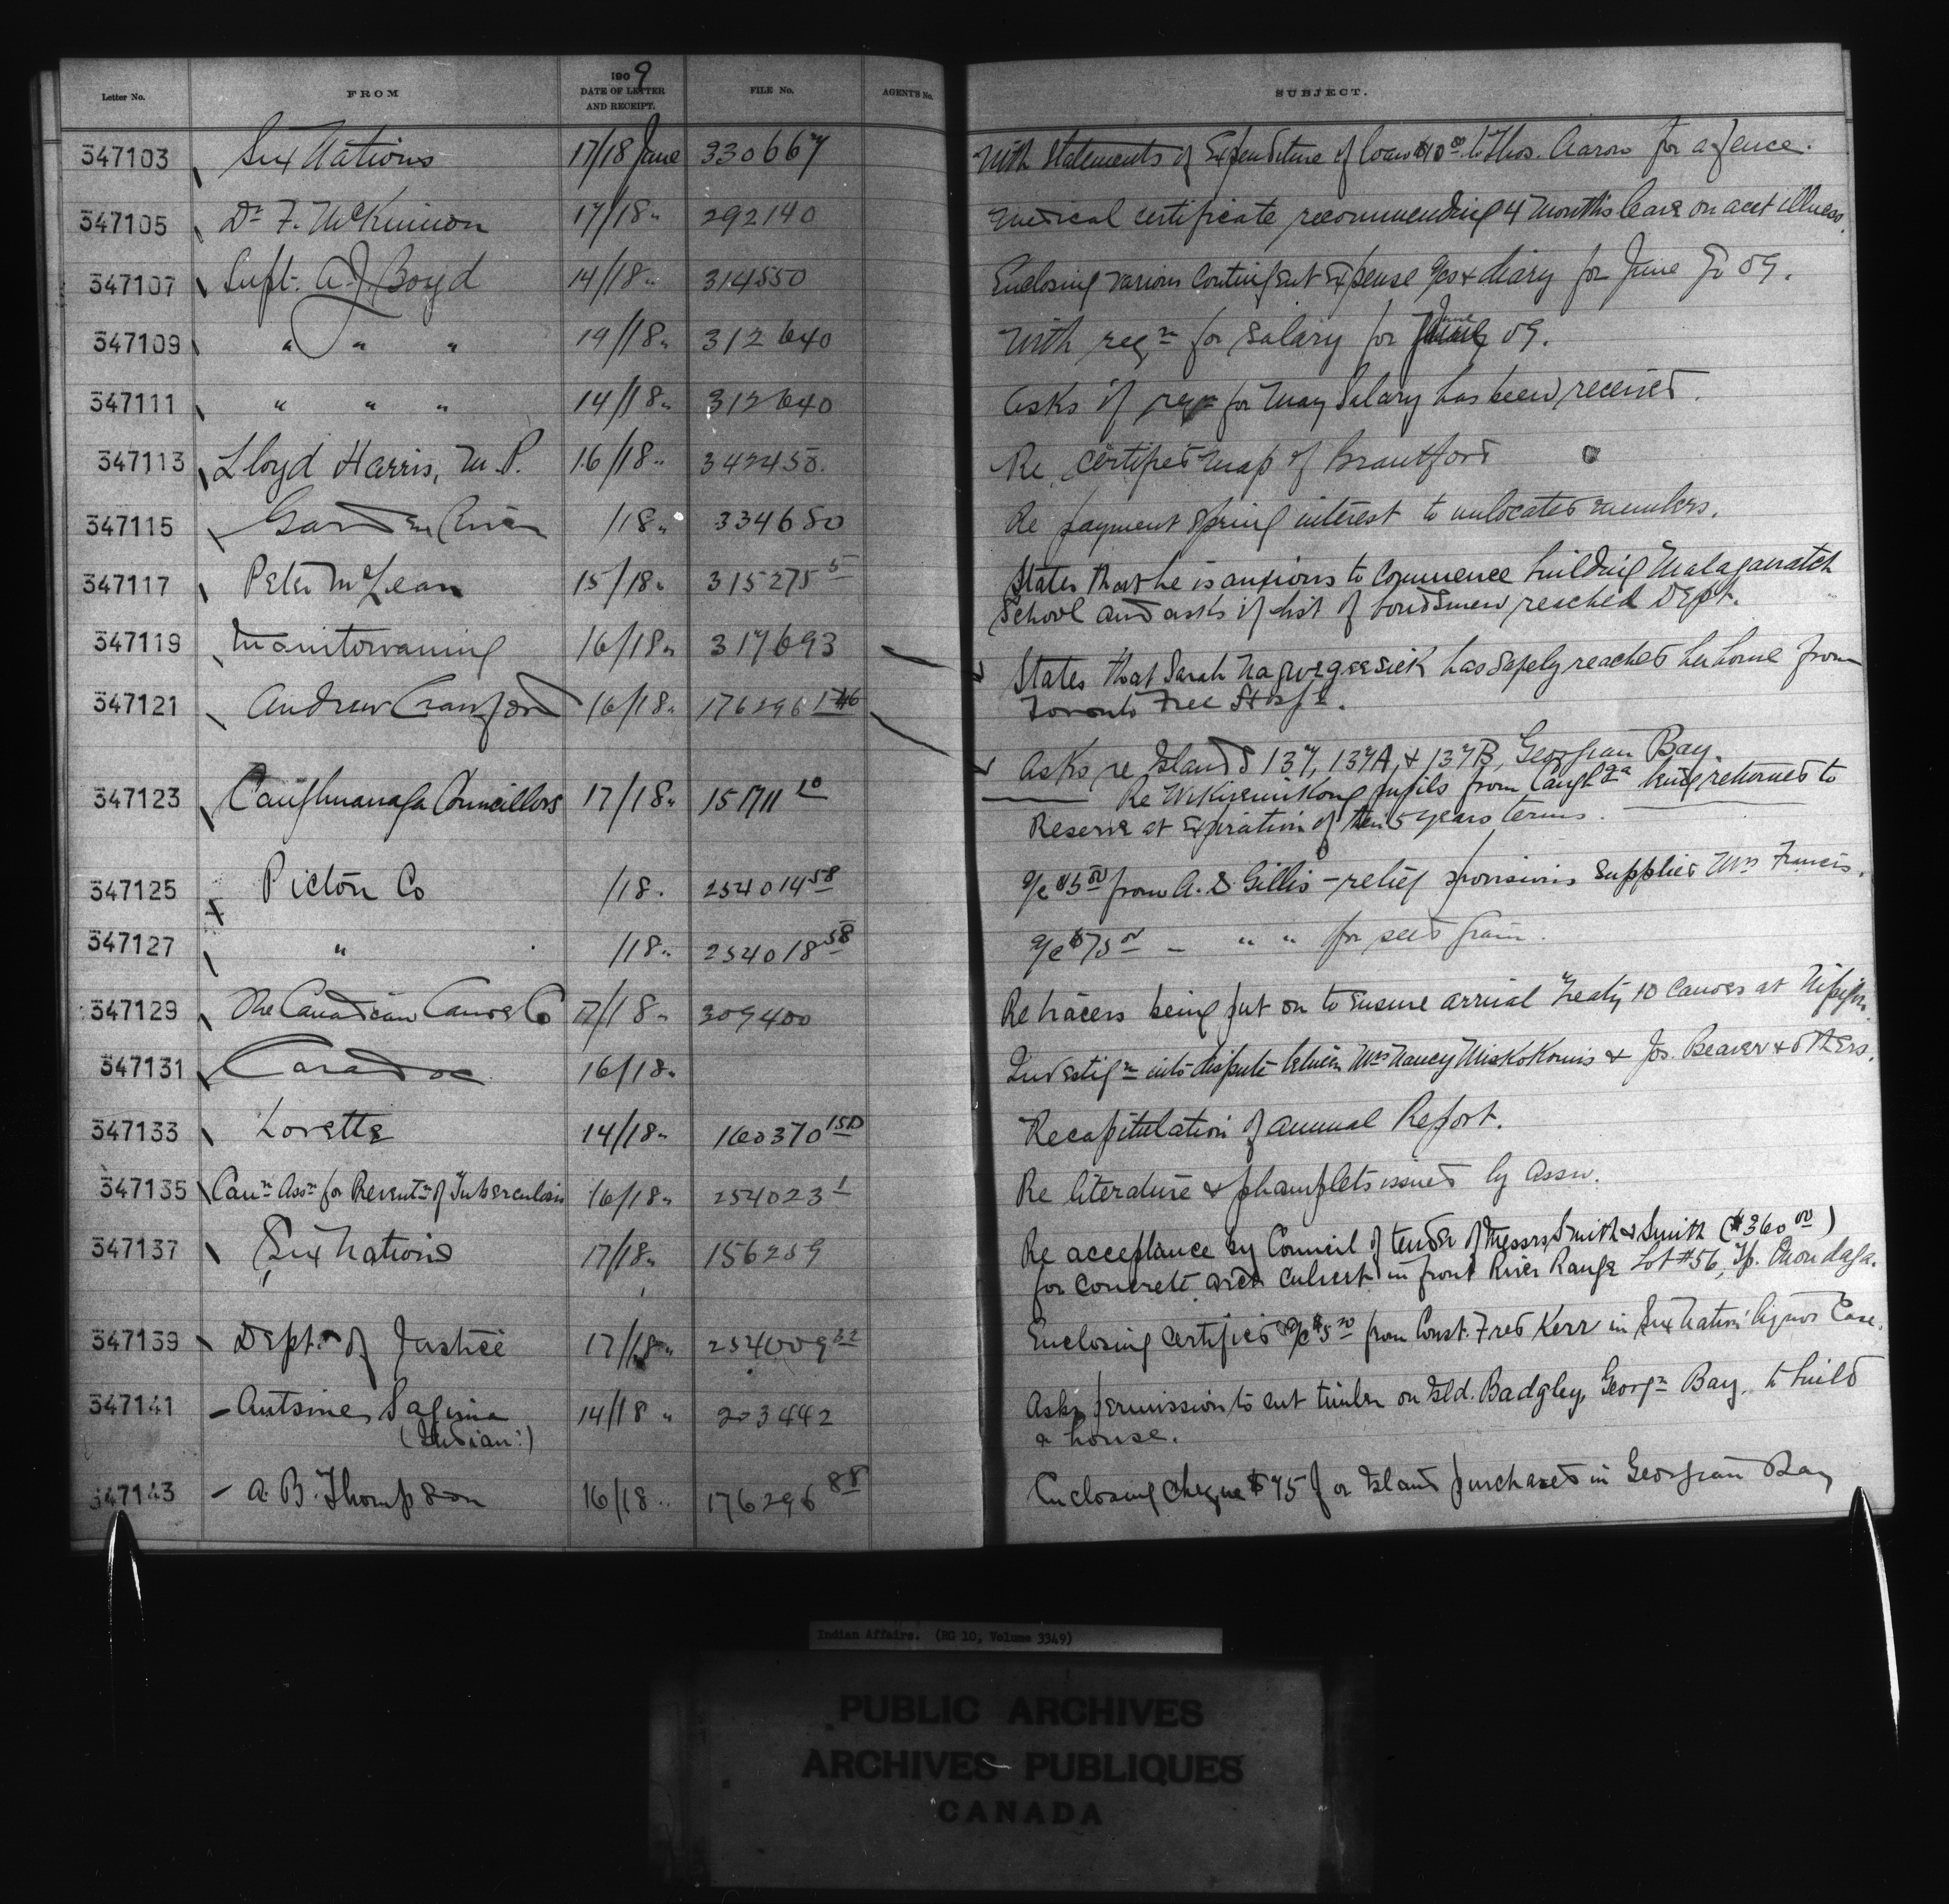 Letter No. FROM 1909 DATE OF LETTER AND RECEIPT. FILE No. AGENT'S No. SUBJECT.
347103 Six Nations 17/18 June 330667 With Statements of Expenditure of loan $10.00 to Thos. Aaron for a fence.
347105 Dr F. McKinnon 17/18 " 292140 Medical certificate recommending 4 months leave on acct illness.
347107 Supt. A.J. Boyd 14/18 " 314550 Enclosing various Contingent Expense a/cs & diary for June 09.
347109 " " " 14/18 " 312640 With reqn for Salary for June 09.
347111 " " " 14/18 " 312640 Asks if reqn for May Salary has been received.
347113 Lloyd Harris, M.P. 16/18 " 342450. Re certified map of Brantford
347115 Garden River /18 " 334680 Re payment Spring interest to unlocated members.
347117 Peter McLean 15/18 " 315275 5 States that he is anxious to Commence building Malagawatch
School and asks if list of bondsmen reached Dept.
347119 Manitowaning 16/18 " 317693 States that Sarah has safely reached her home from
Toronto Free Hospl.
347121 Andrew Crawford 16/18 " 176296 Asks re Islands 137, 137A, & 137B, Georgian Bay.
347123 Caughnawaga Councillors 17/18 " 151711 10 Re Wikwemikong pupils from Caughga being returned to
Reserve at expiration of their 5 years terms.
347125 Pictou Co /18 " 254014 58 a/c $5.00 from A. S. Gillis - relief provisions Supplied Mrs Francis.
347127 " /18 " 254018 58 a/c $75.00 - " " for seed grain.
347129 The Canadian Canoe Co 17/18 " 309400 Re tracers being put on to ensure arrival Treaty 10 Canoes at Nipigon.
347131 Caradoc 16/18 " Investign into dispute between Mrs Nancy Miskokomis & Jos. Beaver & others.
347133 Lorette 14/18 " 160370 150 Recapitulation of annual Report.
347135 Cann Assn for Preventn of Tuberculosis 16/18 " 254023 1 Re literature & phamplets issued by Assn.
347137 Six Nations 17/18 " 156259 Re acceptance by Council of tender of Messrs Smith & Smith ($360.00)
for concrete arch culvert in front River Range Lot #56, Tp. Onondaga.
347139 Dept. of Justice 17/18 " 254009 32 Enclosing Certified a/c from Const. Fred Kerr in Six Nation liquor Case.
347141 - Antoine 14/18 " 203442 Asks permission to cut timber on Isld. Badgley, Georgn Bay, to build
(Indian.) a house.
347143 - A. B. Thompson 16/18 " 176296 88 Enclosing cheque $75 for Island purchased in Georgian Bay
Indian Affairs. (RG 10, Volume 3349)
PUBLIC ARCHIVES
ARCHIVES PUBLIQUES
CANADA